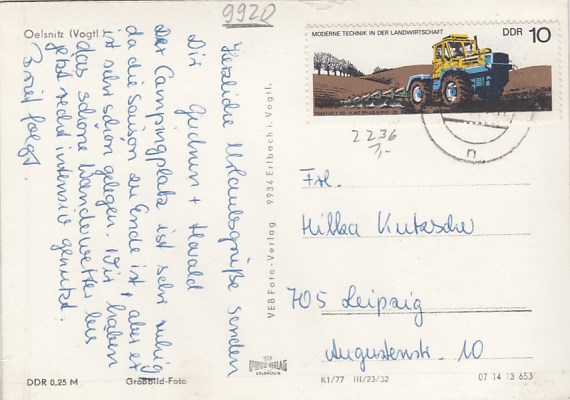 9920
Oelsnitz (Vogtl.)
Herzliche Urlaubsgrüße senden
Dir Gudrun + Harald
Der Campingplatz ist sehr ruhig,
da die Saison zu Ende ist, aber er
ist sehr schön gelegen. Wir haben
das schöne Wanderwetter bis
jetzt recht intensiv genutzt.
Brief folgt.
DDR 0,25 M
Großbild-Foto
VEB Foto-Verlag 9934 Erlbach i. Vogtl.
MODERNE TECHNIK IN DER LANDWIRTSCHAFT
DDR 10
2236
1,-
n
Frl.
Hilka Kutzsche
705 Leipzig
Augustenstr. 10
K1/77 III/23/32
07 14 13 653